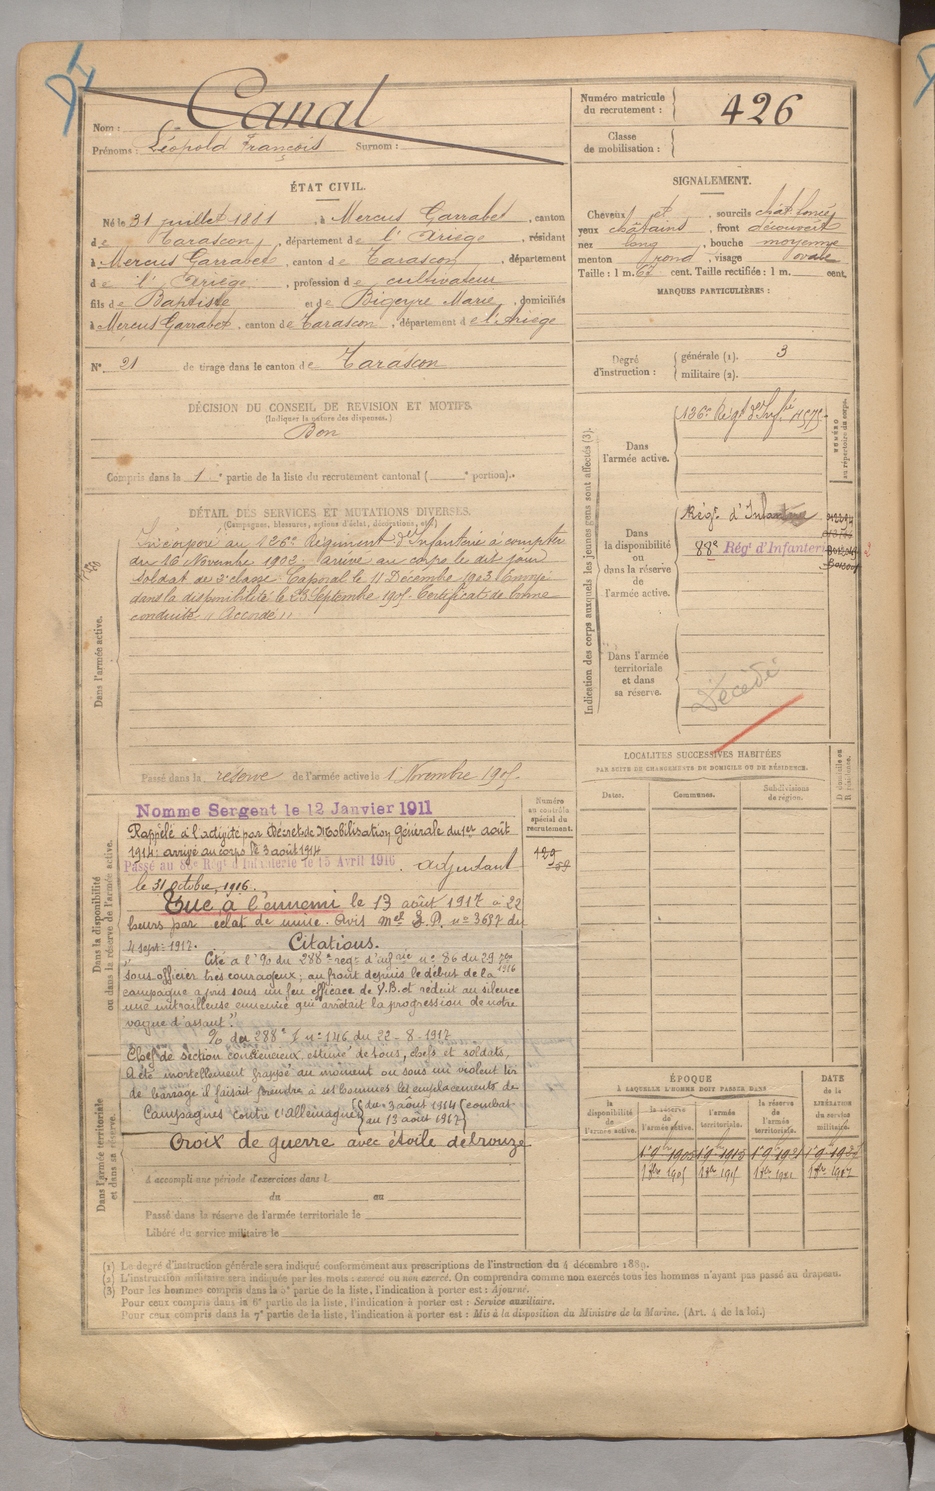 Nom : Canal
Prénoms : Léopold François Surnom :
Numéro matricule du recrutement : 426
Classe de mobilisation :
ÉTAT CIVIL.
Né le 31 juillet 1881, à Mercus Garrabet, canton
de Tarascon, département de l'Ariège, résidant
à Mercus Garrabet, canton de Tarascon, département
de l'Ariège, profession de cultivateur
fils de Baptiste et de Bigeyre Marie, domiciliés
à Mercus Garrabet, canton de Tarascon, département de l'Ariège
N° 21 de tirage dans le canton de Tarascon
SIGNALEMENT.
Cheveux et sourcils chât. foncés
yeux châtains, front découvert
nez long, bouche moyenne
menton rond, visage ovale
Taille : 1 m. cent. Taille rectifiée : 1 m. cent.
MARQUES PARTICULIÈRES :
Degré d'instruction : générale (1). 3
militaire (2).
DÉCISION DU CONSEIL DE REVISION ET MOTIFS.
(Indiquer la nature des dispenses.)
Bon
Compris dans la 1e partie de la liste du recrutement cantonal ( e portion).
DÉTAIL DES SERVICES ET MUTATIONS DIVERSES.
(Campagnes, blessures, actions d'éclat, décorations, etc.)
Dans l'armée active.
Incorporé au 126e Régiment d'Infanterie à compter
du 16 Novembre 1902. arrivé au corps le dit jour
soldat de 2e classe. Caporal le 11 Décembre 1903. Envoyé
dans la disponibilité le 23 Septembre 1905. Certificat de bonne
conduite "Accordé"
Passé dans la réserve de l'armée active le 1 Novembre 1905.
Indication des corps auxquels les jeunes gens sont affectés (3).
NUMÉRO au répertoire du corps.
Dans l'armée active.
126e Régt d'Infie
Dans la disponibilité ou dans la réserve de l'armée active.
Régt d'Infanterie
88e Régt d'Infanterie
Dans l'armée territoriale et dans sa réserve.
Décédé
LOCALITÉS SUCCESSIVES HABITÉES
PAR SUITE DE CHANGEMENTS DE DOMICILE OU DE RÉSIDENCE.
Dates. Communes. Subdivisions de région. D domicile ou R résidence.
Dans la disponibilité ou dans la réserve de l'armée active.
Numéro au contrôle spécial du recrutement.
Nommé Sergent le 12 Janvier 1911
Rappelé à l'activité par Décret de Mobilisation Générale du 1er août
1914 : arrivé au corps le 3 août 1914
Passé au Régt d'Infanterie le 15 Avril 1916. adjudant
le 31 octobre 1916.
Tué à l'ennemi le 13 août 1917 à 22
heures par éclat de mine. Avis mel n° 3687 du
4 sept. 1917.
Citations.
Cité à l'% du 288e reg. d'infrie n° 86 du 29 1916
sous officier très courageux ; au front depuis le début de la
campagne a pris sous un feu efficace de V.B. et réduit au silence
une mitrailleuse ennemie qui arrêtait la progression de notre
vague d'assaut."
% du 288e I n° 146 du 22-8-1917
Chef de section consciencieux, estimé de tous, chefs et soldats,
A été mortellement frappé au moment où sous un violent tir
de barrage il faisait prendre à ses hommes les emplacements de
combat
Campagnes contre l'allemagne { du 3 août 1914
au 13 août 1917 }
Croix de guerre avec étoile de bronze
Dans l'armée territoriale et dans sa réserve.
A accompli une période d'exercices dans l
du au
Passé dans la réserve de l'armée territoriale le
Libéré du service militaire le
ÉPOQUE
À LAQUELLE L'HOMME DOIT PASSER DANS
la disponibilité de l'armée active. la réserve de l'armée active. l'armée territoriale. la réserve de l'armée territoriale.
DATE de la LIBÉRATION du service militaire.
(1) Le degré d'instruction générale sera indiqué conformément aux prescriptions de l'instruction du 4 décembre 1889.
(2) L'instruction militaire sera indiquée par les mots : exercé ou non exercé. On comprendra comme non exercés tous les hommes n'ayant pas passé au drapeau.
(3) Pour les hommes compris dans la 5e partie de la liste, l'indication à porter est : Ajourné.
Pour ceux compris dans la 6e partie de la liste, l'indication à porter est : Service auxiliaire.
Pour ceux compris dans la 7e partie de la liste, l'indication à porter est : Mis à la disposition du Ministre de la Marine. (Art. 4 de la loi.)